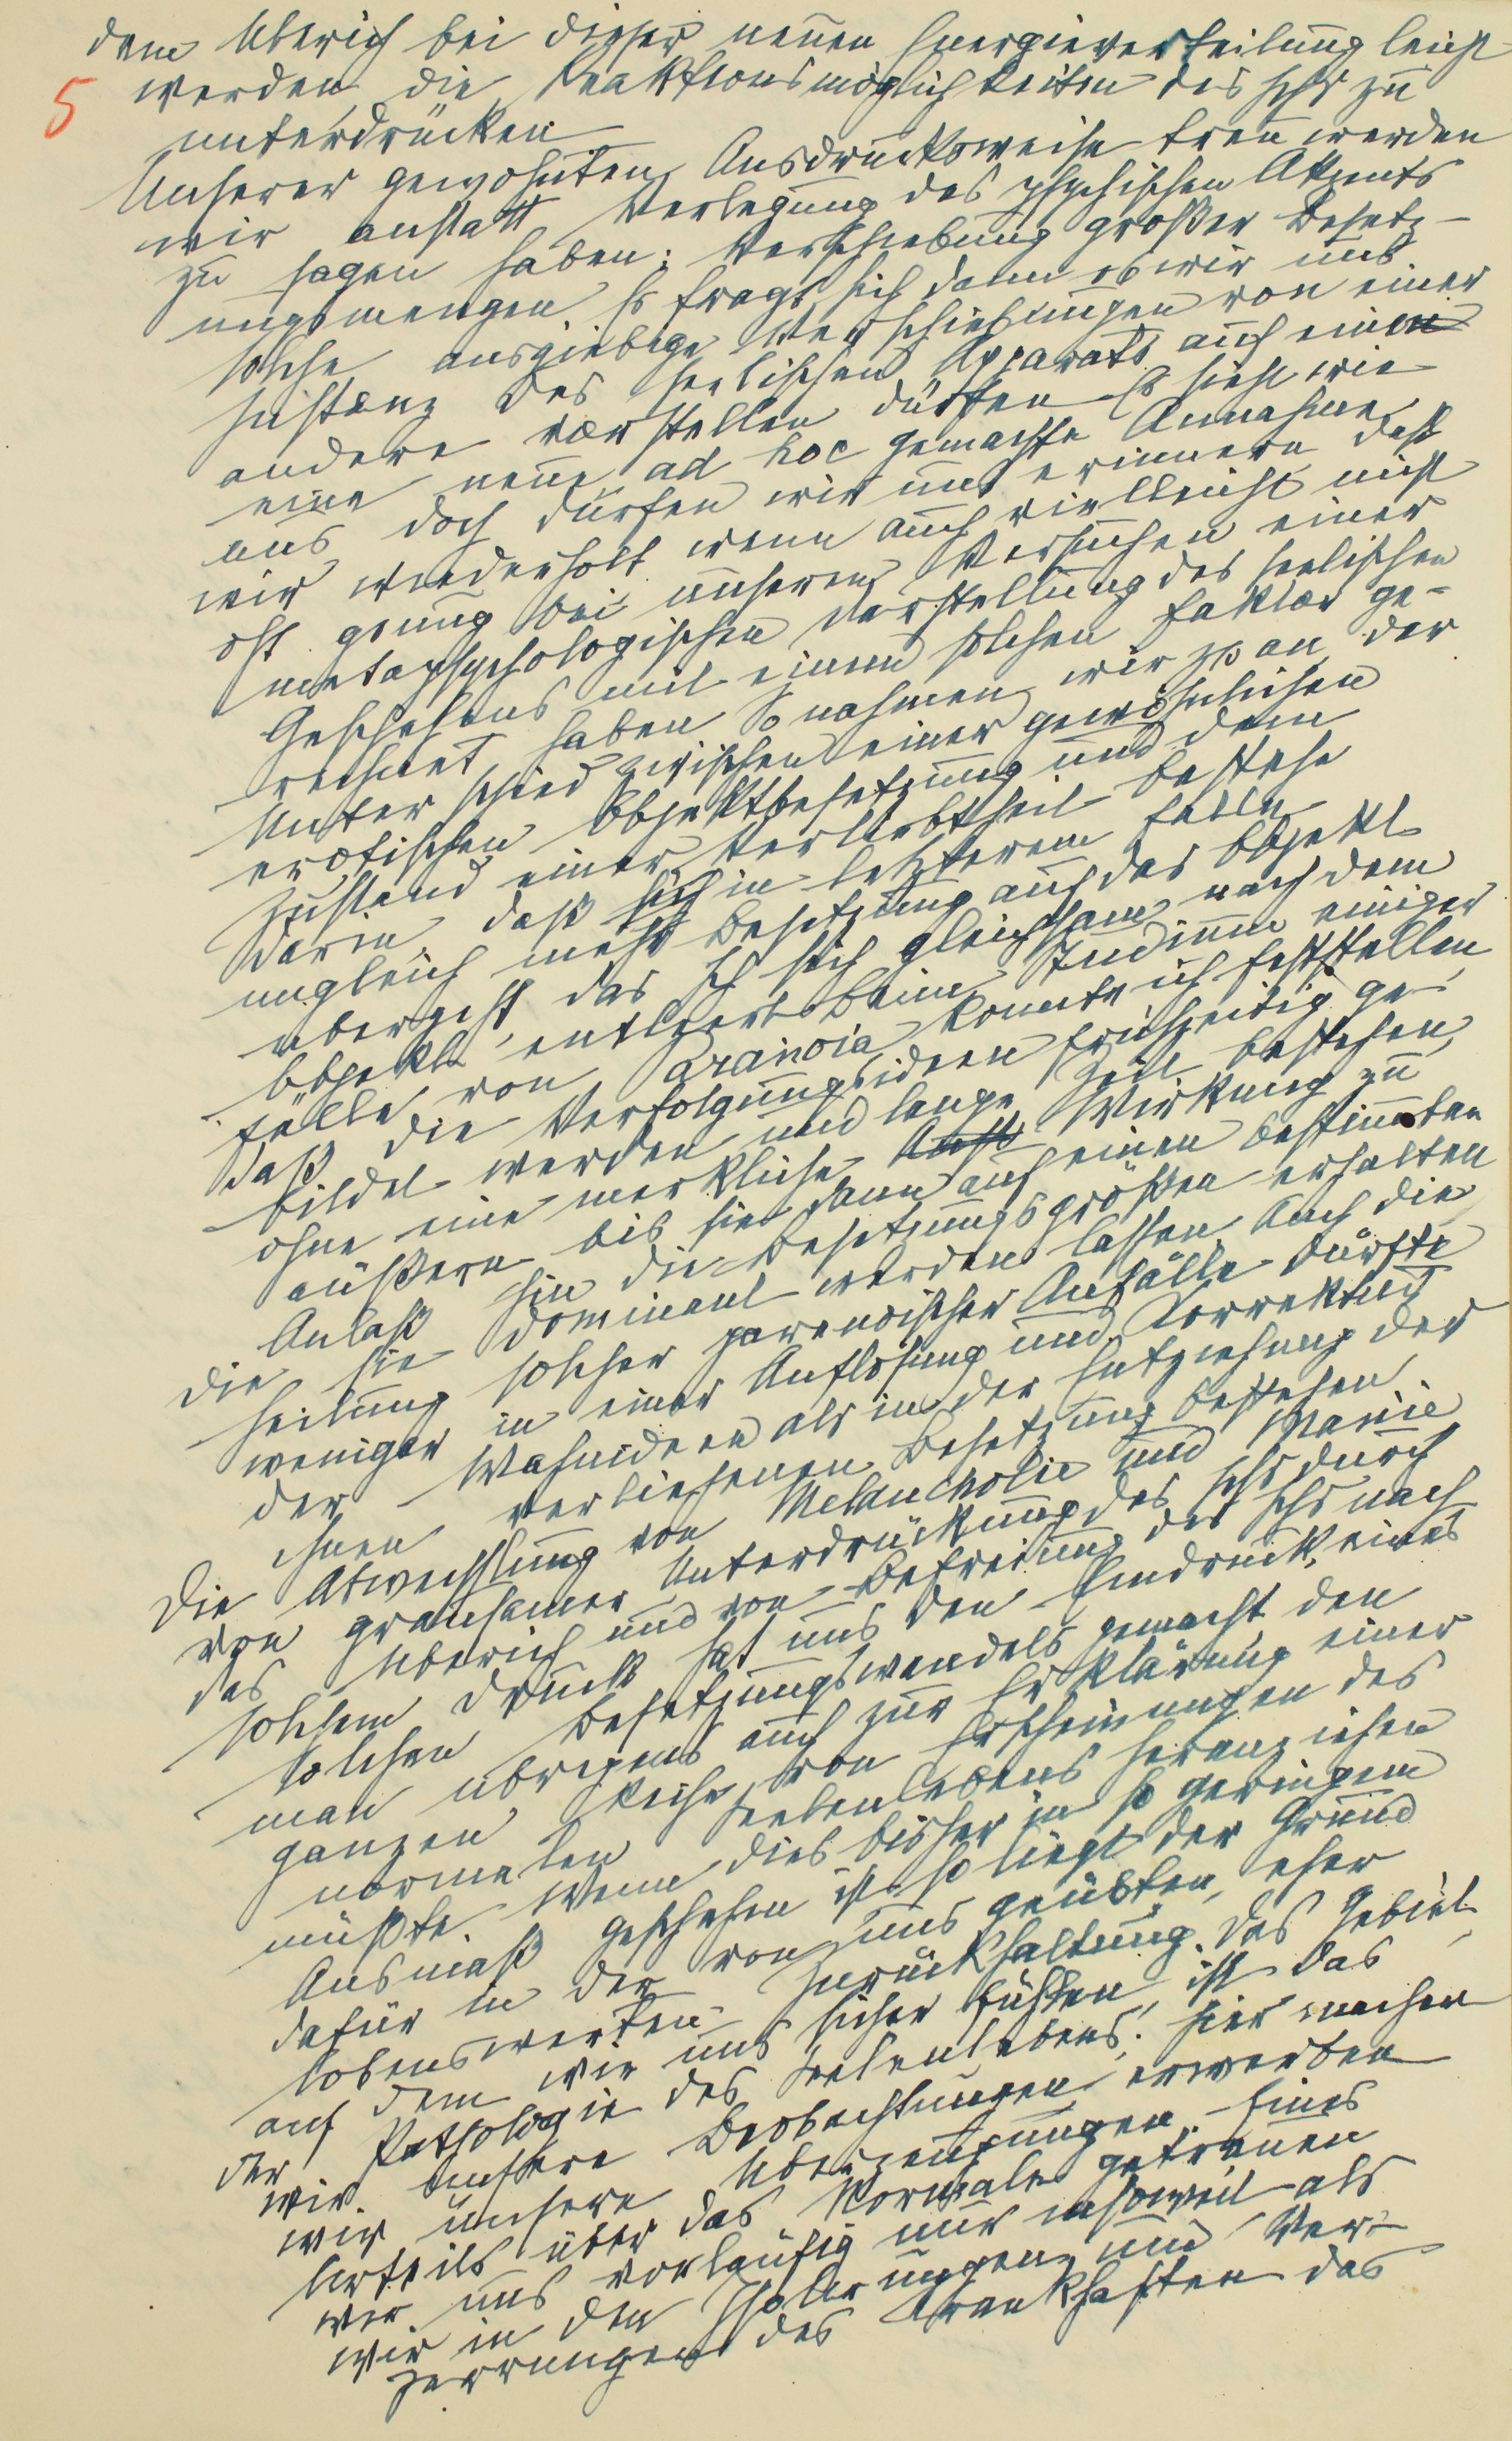 dem Überich bei dieser neuen Energieverteilung leicht
5 werden, die Reaktionsmöglichkeiten des Ichs zu
unterdrücken
Unserer gewohnten Ausdrucksweise treu werden
wir anstatt Verlegung des psychischen Akzents
zu sagen haben: Verschiebung großer Besetz-
ungsmengen Es fragt sich dann ob wir uns
solche ausgiebige Verschiebungen von einer
Instanz des seelischen Apparats auf eine
andere vorstellen dürfen Es sieht wie
eine neue ad hoc gemachte Annahme
aus doch dürfen wir uns erinnern daß
wir wiederholt wenn auch vielleicht nicht
oft genug bei unseren Versuchen einer
metapsychologischen Darstellung des seelischen
Geschehens mit einem solchen Faktor ge-
rechnet haben So nahmen wir zB an der
Unterschied zwischen einer gewöhnlichen
erotischen Objektbesetzung und dem
Zustand einer Verliebtheit bestehe
darin, daß in letzterem Falle
ungleich mehr Besetzung auf das Objekt
übergeht, das Ich sich gleichsam nach dem
Objekt entleert. Beim Studium einiger
Fälle von Paranoia konnte ich feststellen,
daß die Verfolgungsideen frühzeitig ge-
bildet werden und lange Zeit bestehen,
ohne eine merkliche Wirkung zu
äußern bis sie dann auf einen bestimmten
Anlaß hin die Besetzungsgrößen erhalten
die sie dominant werden lassen. Auch die
Heilung solcher paranoischer Anfälle dürfte
weniger in einer Auflösung und Korrektur
der Wahnideen als in der Entziehung der
ihnen verliehenen Besetzung bestehen.
Die Abwechslung von Melancholie und Manie
von grausamer Unterdrückung des Ichs durch
das Überich und von Befreiung des Ichs nach
solchem Druck hat uns den Eindruck eines
solchen Besetzungswandels gemacht, den
man übrigens auch zur Erklärung einer
ganzen Reihe von Erscheinungen des
normalen Seelenlebens heranziehen
müßte. Wenn dies bisher in so geringem
Ausmaß geschehen ist, so liegt der Grund
dafür in der von uns geübten, eher
lobenswerten Zurückhaltung. Das Gebiet,
auf dem wir uns sicher fühlen, ist das
der Pathologie des Seelenlebens; hier machen
wir unsere Beobachtungen, erwerben
wir unsere Überzeugungen. Eines
Urteils über das Normale getrauen
wir uns vorläufig nur insoweit als
wir in den Isolierungen und Ver-
zerrungen des Krankhaften das